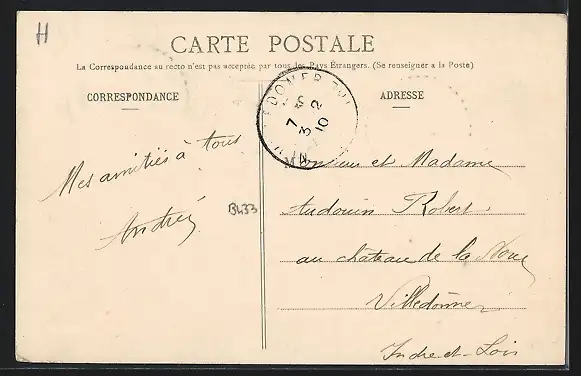 H
CARTE POSTALE
La Correspondance au recto n'est pas acceptée par tous les Pays Étrangers. (Se renseigner a la Poste)
CORRESPONDANCE
ADRESSE
7 3 10
Mes amitiés à tous
André
B433
Monsieur et Madame
Audouin Robert
au château de la Noue
Villedômer
Indre-et-Loire